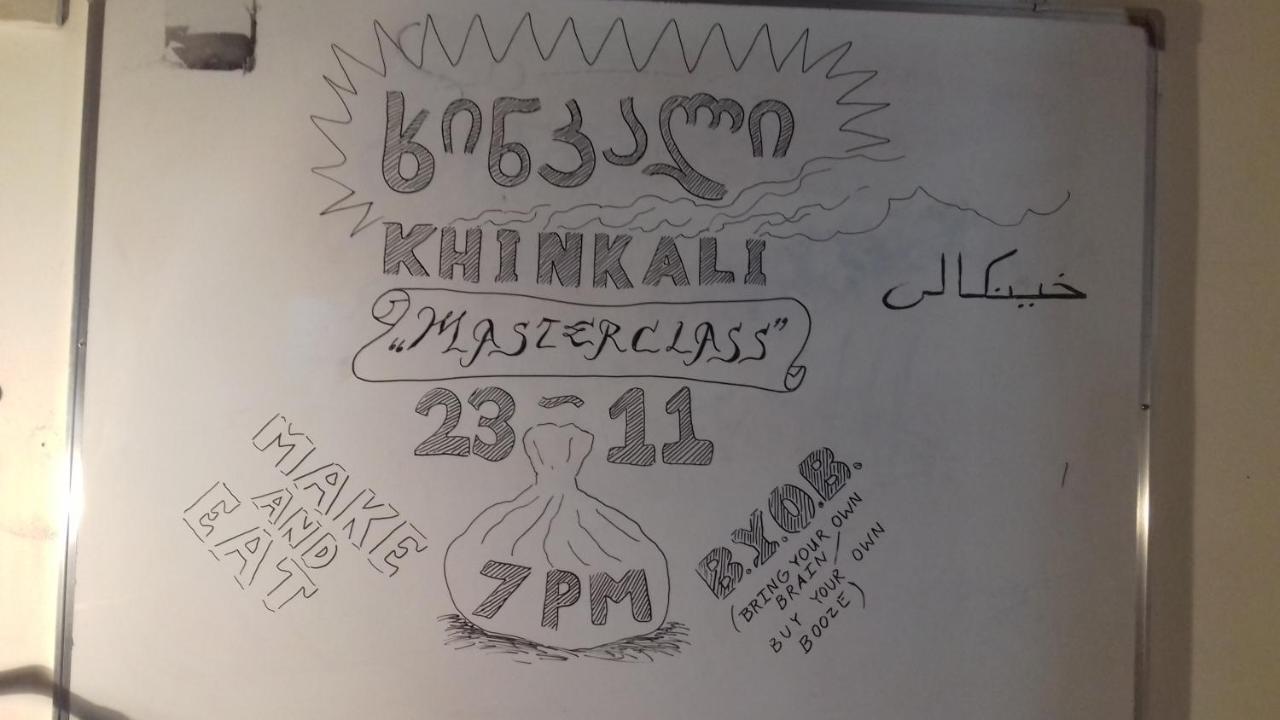 ხინკალი
KHINKALI
خينكالى
"MASTERCLASS"
23-11
7 PM
MAKE
AND
EAT
B.Y.O.B.
(BRING YOUR OWN
BRAIN/
BUY YOUR OWN
BOOZE)